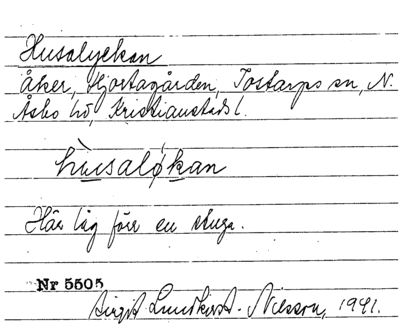 Husalyckan
Åker, Hjortagården, Tostarps sn, N.
Åsbo hd, Kristianstads l.
hùsalǿkan
Här låg förr en stuga.
Nr 5505
Birgit Lundkvist-Nilsson, 1941.